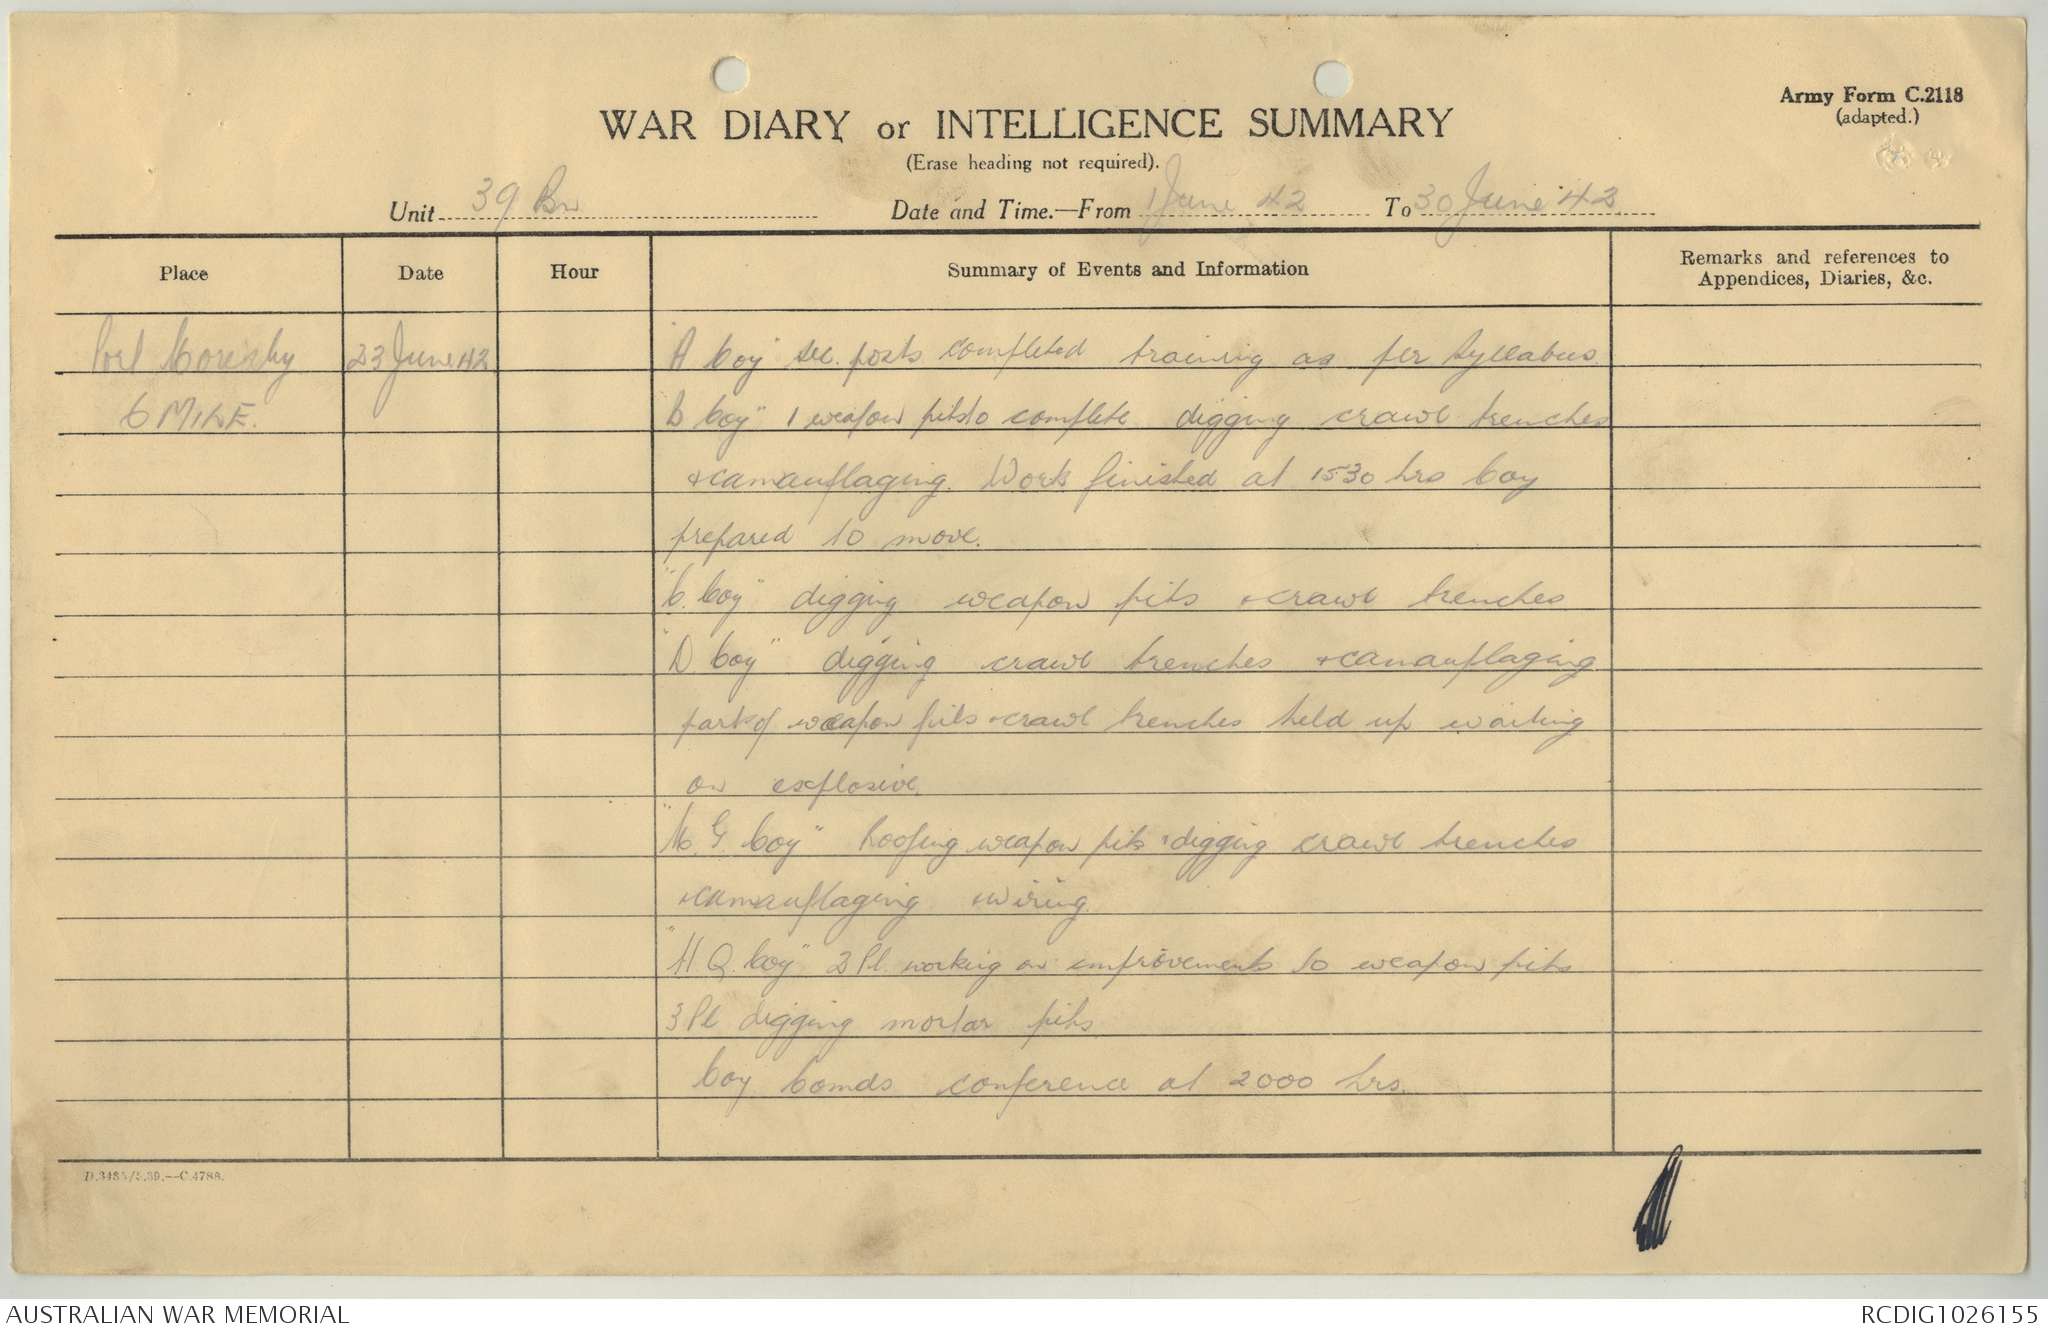 Army Form C.2118
(adapted.)
WAR DIARY or INTELLIGENCE SUMMARY
(Erase heading not required).
Unit 39 Bn Date and Time.—From 1 June 42 To 30 June 42
Place Date Hour Summary of Events and Information Remarks and references to Appendices, Diaries, &c.
Port Moresby 23 June 42 "A Coy" sec. posts completed training as per syllabus
6 MILE. B Coy" 1 weapon pit to complete digging crawl trenches
+ camauflaging. Work finished at 1530 hrs Coy
prepared to move.
"C. Coy" digging weapon pits + crawl trenches
"D Coy" digging crawl trenches + camauflaging
parts of weapon pits + crawl trenches held up waiting
on explosive.
"M. G Coy" roofing weapon pits + digging crawl trenches
+ camauflaging + wiring.
"H Q. Coy" 2 Pl. working on improvements to weapon pits
3 Pl digging mortar pits
Coy. Comds conference at 2000 hrs.
D.3485/5.39.—C.4788.
AUSTRALIAN WAR MEMORIAL RCDIG1026155